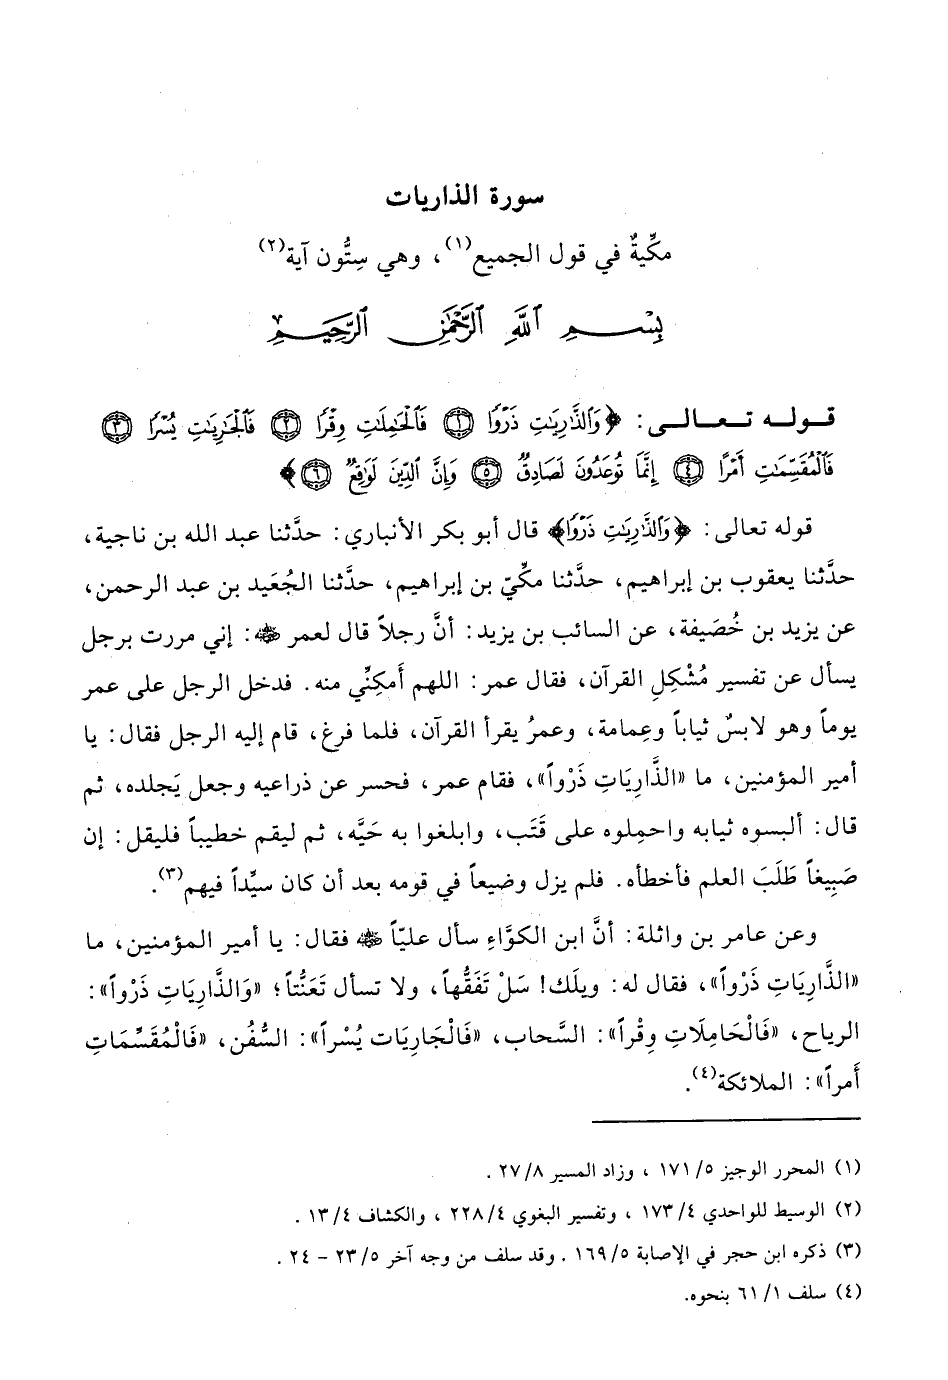 سورة الذاريات
مكِّيةٌ في قول الجميع(١)، وهي ستُّون آية(٢)
بِسْمِ ٱللَّهِ ٱلرَّحْمَٰنِ ٱلرَّحِيمِ
قوله تعالى: ﴿وَٱلذَّٰرِيَٰتِ ذَرْوًا ۝١ فَٱلْحَٰمِلَٰتِ وِقْرًا ۝٢ فَٱلْجَٰرِيَٰتِ يُسْرًا ۝٣
فَٱلْمُقَسِّمَٰتِ أَمْرًا ۝٤ إِنَّمَا تُوعَدُونَ لَصَادِقٌ ۝٥ وَإِنَّ ٱلدِّينَ لَوَٰقِعٌ ۝٦﴾
قوله تعالى: ﴿وَٱلذَّٰرِيَٰتِ ذَرْوًا﴾ قال أبو بكر الأنباري: حدَّثنا عبد الله بن ناجية،
حدَّثنا يعقوب بن إبراهيم، حدَّثنا مكِّيّ بن إبراهيم، حدَّثنا الجُعَيد بن عبد الرحمن،
عن يزيد بن خُصَيفة، عن السائب بن يزيد: أنَّ رجلاً قال لعمر ﷺ: إني مررت برجل
يسأل عن تفسير مُشْكِلِ القرآن، فقال عمر: اللهم أَمكِنِّي منه. فدخل الرجل على عمر
يوماً وهو لابسٌ ثياباً وعِمامة، وعمرُ يقرأ القرآن، فلما فرغ، قام إليه الرجل فقال: يا
أمير المؤمنين، ما «الذَّارِيَاتِ ذَرْواً»، فقام عمر، فحسر عن ذراعيه وجعل يَجلده، ثم
قال: ألبسوه ثيابه واحمِلوه على قَتَب، وابلغوا به حَيَّه، ثم ليقم خطيباً فليقل: إن
صَبِيغاً طَلَبَ العلم فأخطأه. فلم يزل وضيعاً في قومه بعد أن كان سيِّداً فيهم(٣).
وعن عامر بن واثلة: أنَّ ابن الكوَّاءِ سأل عليّاً ﷺ فقال: يا أمير المؤمنين، ما
«الذَّارِيَاتِ ذَرْواً»، فقال له: ويلَك! سَلْ تَفَقُّهاً، ولا تسأل تَعَنُّتاً؛ «وَالذَّارِيَاتِ ذَرْواً»:
الرياح، «فَالْحَامِلَاتِ وِقْراً»: السَّحاب، «فَالْجَارِيَات يُسْراً»: السُّفُن، «فَالْمُقَسِّمَاتِ
أَمراً»: الملائكة(٤).
(١) المحرر الوجيز ١٧١/٥ ، وزاد المسير ٢٧/٨ .
(٢) الوسيط للواحدي ١٧٣/٤ ، وتفسير البغوي ٢٢٨/٤ ، والكشاف ١٣/٤ .
(٣) ذكره ابن حجر في الإصابة ١٦٩/٥ . وقد سلف من وجه آخر ٢٣/٥ – ٢٤ .
(٤) سلف ٦١/١ بنحوه.